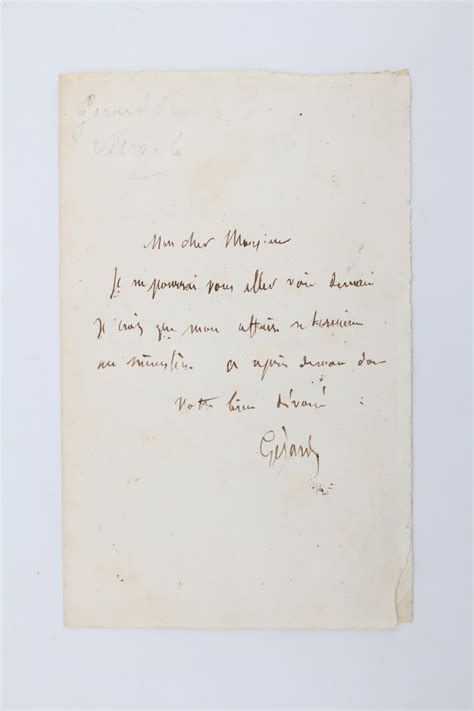 Gérard de
Nerval
Mon cher Monsieur
Je ne pourrai vous aller voir demain
je crois que mon affaire se termine
au ministère. a après demain donc
Votre bien dévoué
Gérard